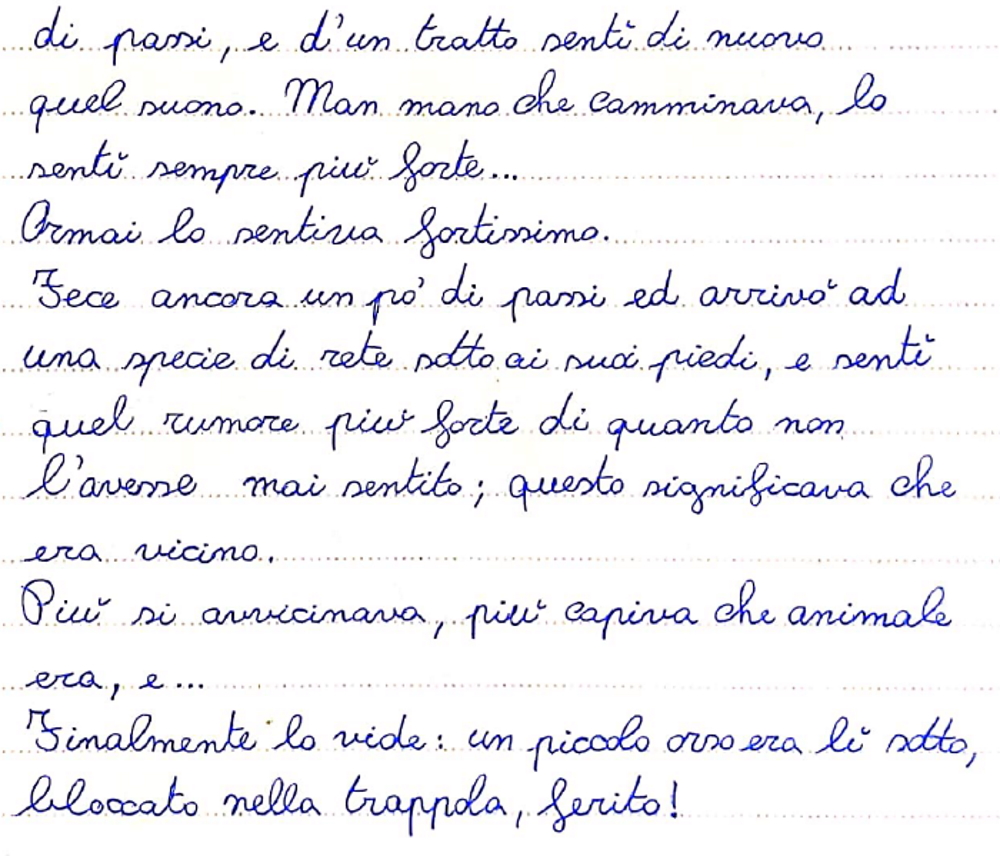 di passi, e d'un tratto sentì di nuovo
quel suono. Man mano che camminava, lo
sentì sempre più forte...
Ormai lo sentiva fortissimo.
Fece ancora un po' di passi ed arrivò ad
una specie di rete sotto ai suoi piedi, e sentì
quel rumore più forte di quanto non
l'avesse mai sentito; questo significava che
era vicino.
Più si avvicinava, più capiva che animale
era, e...
Finalmente lo vide: un piccolo orso era lì sotto,
bloccato nella trappola, ferito!